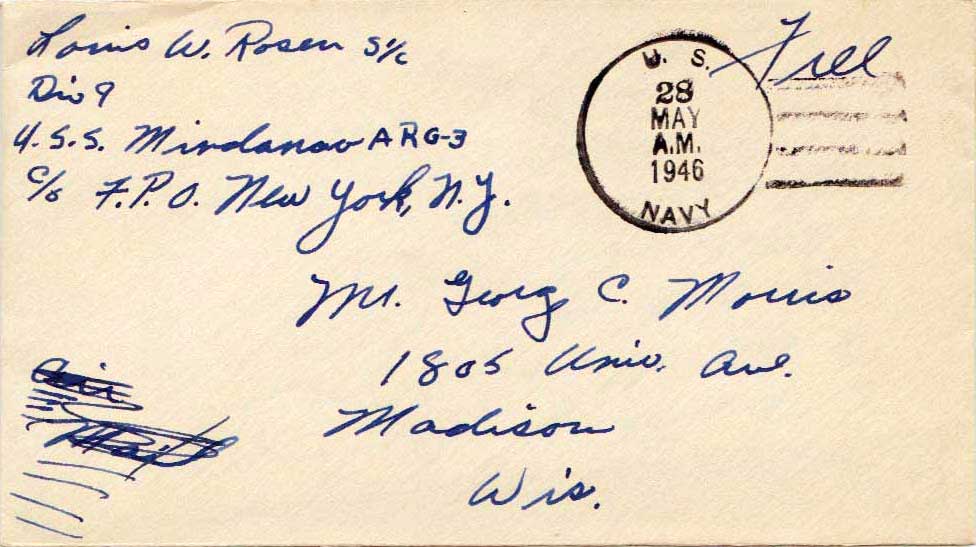 Louis W. Rosen S1/c
Div 9
U.S.S. Mindanao ARG-3
c/o F.P.O. New York, N.Y.
Free
U. S.
28
MAY
A.M.
1946
NAVY
Mr. George C. Morris
1805 Univ. Ave.
Madison
Wis.
Air
Mail